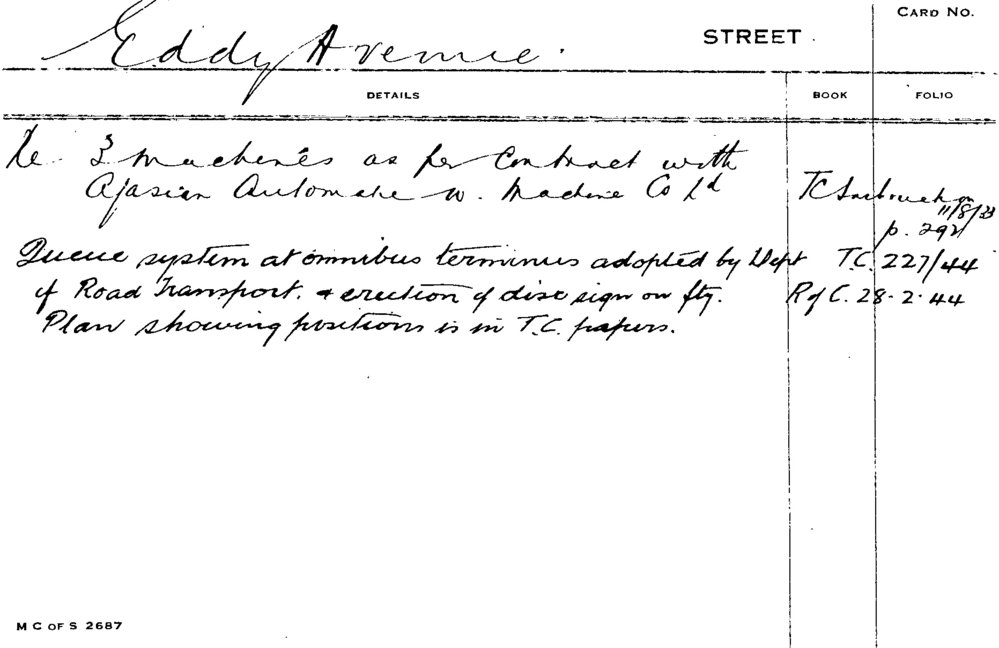 CARD NO.
Eddy Avenue. STREET
DETAILS BOOK FOLIO
Re. 3 Machines as per Contract with
A/asian Automatic W. Machine Co Ld TC
11/8/33
p. 292
Queue system at omnibus terminus adopted by Dept T.C. 227/44
of Road Transport. & erection of disc sign on ftg. R of C. 28.2.44
Plan showing positions is in T.C. papers.
M C OF S 2687